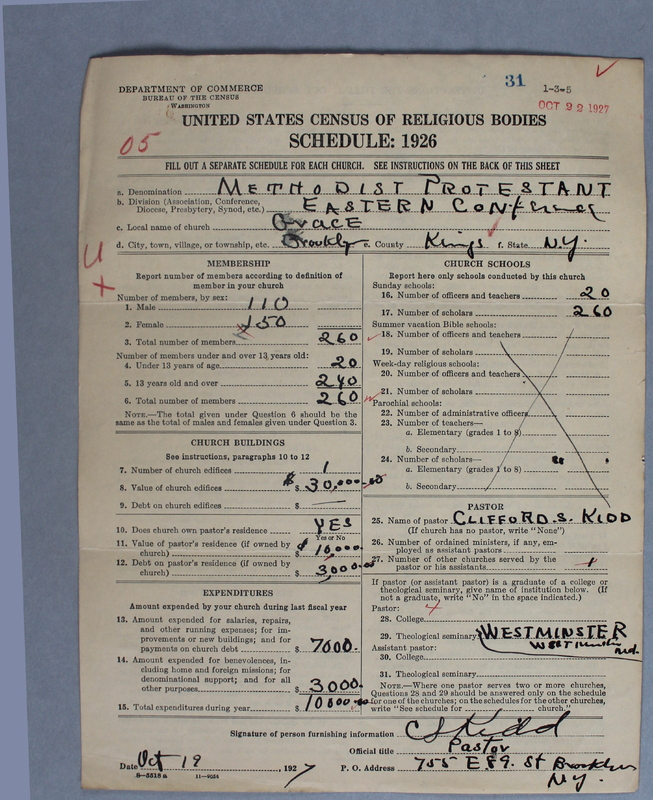 31
1-3-5
OCT 22 1927
DEPARTMENT OF COMMERCE
BUREAU OF THE CENSUS
WASHINGTON
UNITED STATES CENSUS OF RELIGIOUS BODIES
05
SCHEDULE: 1926
FILL OUT A SEPARATE SCHEDULE FOR EACH CHURCH. SEE INSTRUCTIONS ON THE BACK OF THIS SHEET
a. Denomination METHODIST PROTESTANT
b. Division (Association, Conference, Diocese, Presbytery, Synod, etc.) EASTERN Conference
c. Local name of church GRACE
d. City, town, village, or township, etc. Brooklyn e. County Kings f. State N.Y.
MEMBERSHIP
Report number of members according to definition of
member in your church
Number of members, by sex:
1. Male 110
2. Female 150
3. Total number of members 260
Number of members under and over 13 years old:
4. Under 13 years of age 20
5. 13 years old and over 240
6. Total number of members 260
NOTE.—The total given under Question 6 should be the
same as the total of males and females given under Question 3.
CHURCH BUILDINGS
See instructions, paragraphs 10 to 12
7. Number of church edifices 1
8. Value of church edifices $ 30,000.00
9. Debt on church edifices $ —
10. Does church own pastor's residence YES
Yes or No
11. Value of pastor's residence (if owned by
church) $ 10,000.
12. Debt on pastor's residence (if owned by
church) $ 3,000.00
EXPENDITURES
Amount expended by your church during last fiscal year
13. Amount expended for salaries, repairs,
and other running expenses; for im-
provements or new buildings; and for
payments on church debt $ 7000.
14. Amount expended for benevolences, in-
cluding home and foreign missions; for
denominational support; and for all
other purposes $ 3000.
15. Total expenditures during year $ 10000.00
CHURCH SCHOOLS
Report here only schools conducted by this church
Sunday schools:
16. Number of officers and teachers 20
17. Number of scholars 260
Summer vacation Bible schools:
18. Number of officers and teachers
19. Number of scholars
Week-day religious schools:
20. Number of officers and teachers
21. Number of scholars
Parochial schools:
22. Number of administrative officers
23. Number of teachers—
a. Elementary (grades 1 to 8)
b. Secondary
24. Number of scholars—
a. Elementary (grades 1 to 8)
b. Secondary
PASTOR
25. Name of pastor CLIFFORD. S. KIDD
(If church has no pastor, write "None")
26. Number of ordained ministers, if any, em-
ployed as assistant pastors
27. Number of other churches served by the
pastor or his assistants 1
If pastor (or assistant pastor) is a graduate of a college or
theological seminary, give name of institution below. (If
not a graduate, write "No" in the space indicated.)
Pastor:
28. College
29. Theological seminary WESTMINSTER
Assistant pastor: Westminster
30. College Md.
31. Theological seminary
NOTE.—Where one pastor serves two or more churches,
Questions 28 and 29 should be answered only on the schedule
for one of the churches; on the schedules for the other churches,
write "See schedule for church."
Signature of person furnishing information C S Kidd
Official title Pastor
Date Oct 19, 1927
P. O. Address 755 E 89. St Brooklyn
N.Y.
8-5518a 11-9054